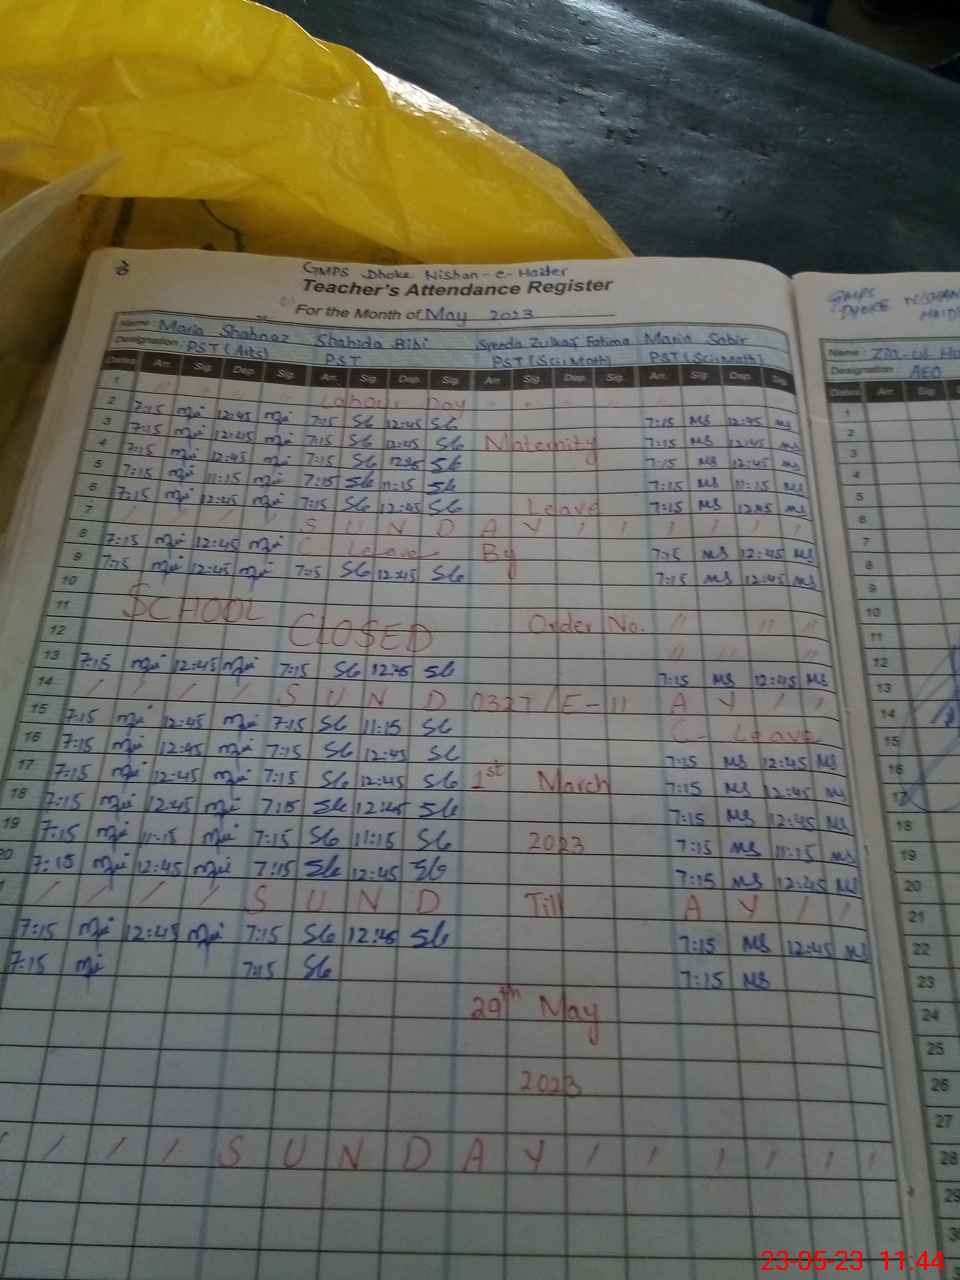 GMPS Dhoke Nishan-e-Haider
Teacher's Attendance Register
For the Month of May 2023
Name: Maria Shahnaz Shahida Bibi Syeeda Zulkaj Fatima Maria Sabir
Designation: PST (Arts) PST PST (Sci:Math) PST (Sci:Math)
Dates Arr. Sig. Dep. Sig. Arr. Sig. Dep. Sig. Arr. Sig. Dep. Sig. Arr. Sig. Dep. Sig.
1 Labour Day
2 7:15 12:45 7:15 Sb 12:45 Sb 7:15 MS 12:45 MS
3 7:15 12:45 7:15 Sb 12:45 Sb Maternity 7:15 MS 12:45 MS
4 7:15 12:45 7:15 Sb 12:45 Sb 7:15 MS 12:45 MS
5 7:15 11:15 7:15 Sb 11:15 Sb 7:15 MS 11:15 MS
6 7:15 12:45 7:15 Sb 12:45 Sb Leave 7:15 MS 12:45 MS
7 S U N D A Y
8 7:15 12:45 C Leave By 7:15 MS 12:45 MS
9 7:15 12:45 7:15 Sb 12:45 Sb 7:15 MS 12:45 MS
10
11 SCHOOL CLOSED Order No. " " "
12 " " "
13 7:15 12:45 7:15 Sb 12:45 Sb 7:15 MS 12:45 MS
14 S U N D 0327/E-11 A Y
15 7:15 12:45 7:15 Sb 11:15 Sb C- Leave
16 7:15 12:45 7:15 Sb 12:45 Sb 7:15 MS 12:45 MS
17 7:15 12:45 7:15 Sb 12:45 Sb 1st March 7:15 MS 12:45 MS
18 7:15 12:45 7:15 Sb 12:45 Sb 7:15 MS 12:45 MS
19 7:15 11:15 7:15 Sb 11:15 Sb 2023 7:15 MS 11:15 MS
20 7:15 12:45 7:15 Sb 12:45 Sb 7:15 MS 12:45 MS
S U N D Till A Y
7:15 12:45 7:15 Sb 12:45 Sb 7:15 MS 12:45 MS
7:15 7:15 Sb 7:15 MS
29th May
2023
S U N D A Y
GMPS
DHOKE NISHAN
HAIDE
Name: Zia-ul-
Designation AEO
Dates Arr. Sig
1
2
3
4
5
6
7
8
9
10
11
12
13
14
15
16
17
18
19
20
21
22
23
24
25
26
27
28
29
30
23-05-23 11:44